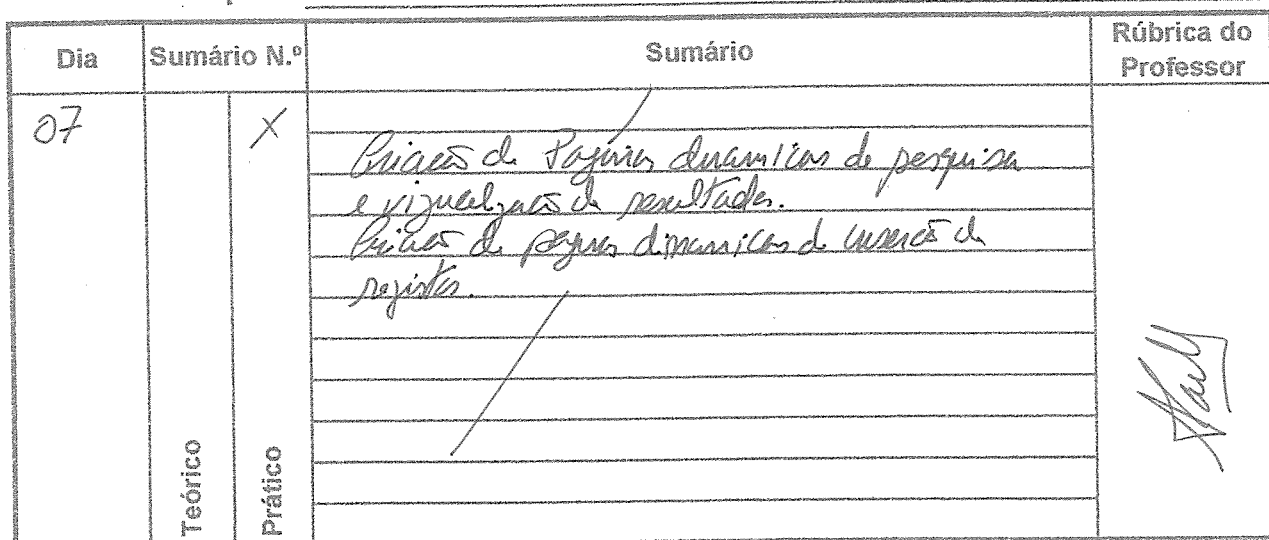 Dia Sumário N.º Sumário Rúbrica do Professor
07 X
Criação de Paginas dinamicas de pesquisa
e vizualização de resultados.
Criação de paginas dinamicas de inserção de
registos.
Teórico
Prático